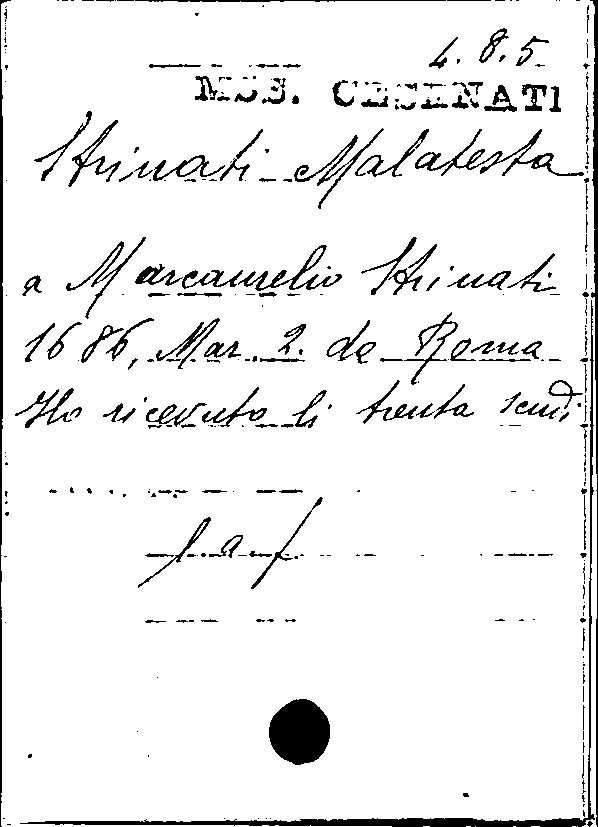 4.8.5
MSS. CESENATI
Strinati Malatesta
a Marcaurelio Strinati
1686, Mar. 2. da Roma
Ho ricevuto li trenta scudi
l.a.f.